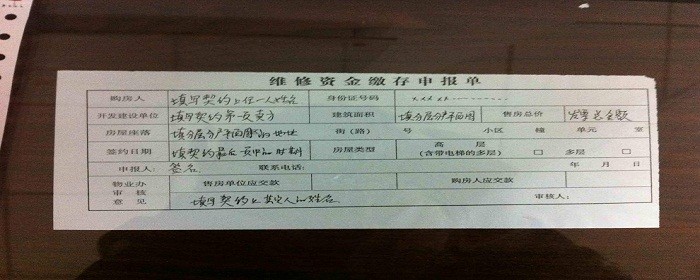 维修资金缴存申报单
购房人 填写契约上任一人姓名 身份证号码 xxxxx-----------
开发建设单位 填写契约第一页卖方 建筑面积 填分层分户平面图 售房总价 发票总金额
房屋座落 填分层分户平面图的地址 街(路) 号 小区 幢 单元 室
签约日期 填契约最后一页中的时期 房屋类型 高层 (含带电梯的多层) □ 多层 □
申报人: 签名 联系电话: 年 月 日
物业办审核意见 售房单位应交款 购房人应交款
填写契约上其人的姓名 审核人: